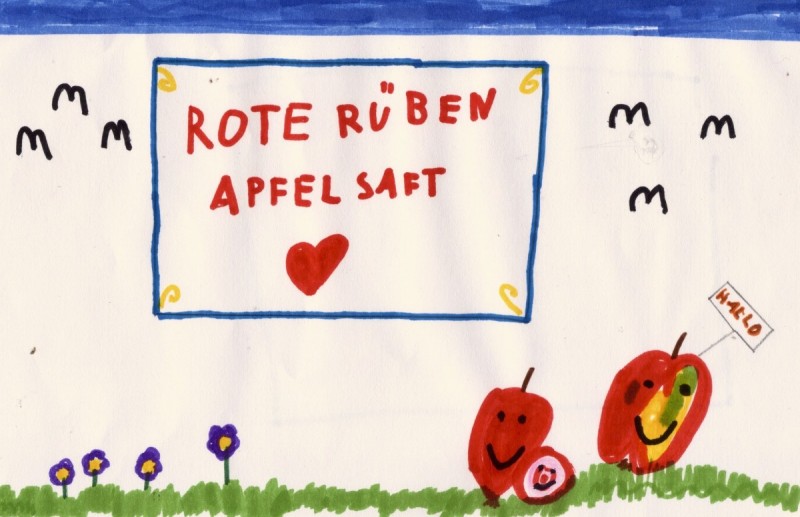 ROTE RÜBEN
APFELSAFT
HALLO